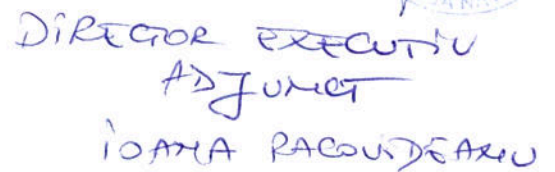 DIRECTOR EXECUTIV
ADJUNCT
IOANA RACOVIDEANU